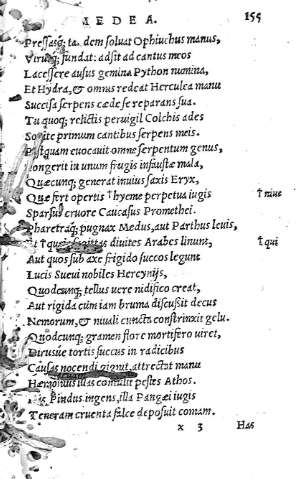 MEDEA. 155
Pressasq; ta dem soluat Ophiuchus manus,
Virusq; fundat: adsit ad cantus meos
Lacessere ausus gemina Python numina,
Et Hydra, & omnis redeat Herculea manu
Succisa serpens cæde se reparans sua.
Tu quoq; relictis peruigil Colchis ades
Sopite primum cantibus serpens meis.
Postquam euocauit omne serpentum genus,
Congerit in unum frugis infaustæ mala,
Quæcunq; generat inuius saxis Eryx,
Quæ fert opertis †hyeme perpetua iugis †niue
Sparsus cruore Caucasus Promethei.
Pharetraq; pugnax Medus, aut Parthus leuis,
Et † quis sagittas diuites Arabes linunt, †qui
Aut quos sub axe frigido succos legunt
Lucis Sueui nobiles Hercynijs,
Quodcunq; tellus uere nidifico creat,
Aut rigida cum iam bruma discussit decus
Nemorum, & niuali cuncta constrinxit gelu.
Quodcunq; gramen flore mortifero uiret,
Dirusue tortis succus in radicibus
Causas nocendi gignit, attrectat manu
Hæmonius illas contulit pestes Athos.
Has, Pindus ingens, illa Pangæi iugis
Teneram cruenta falce deposuit comam.
x 3 Has